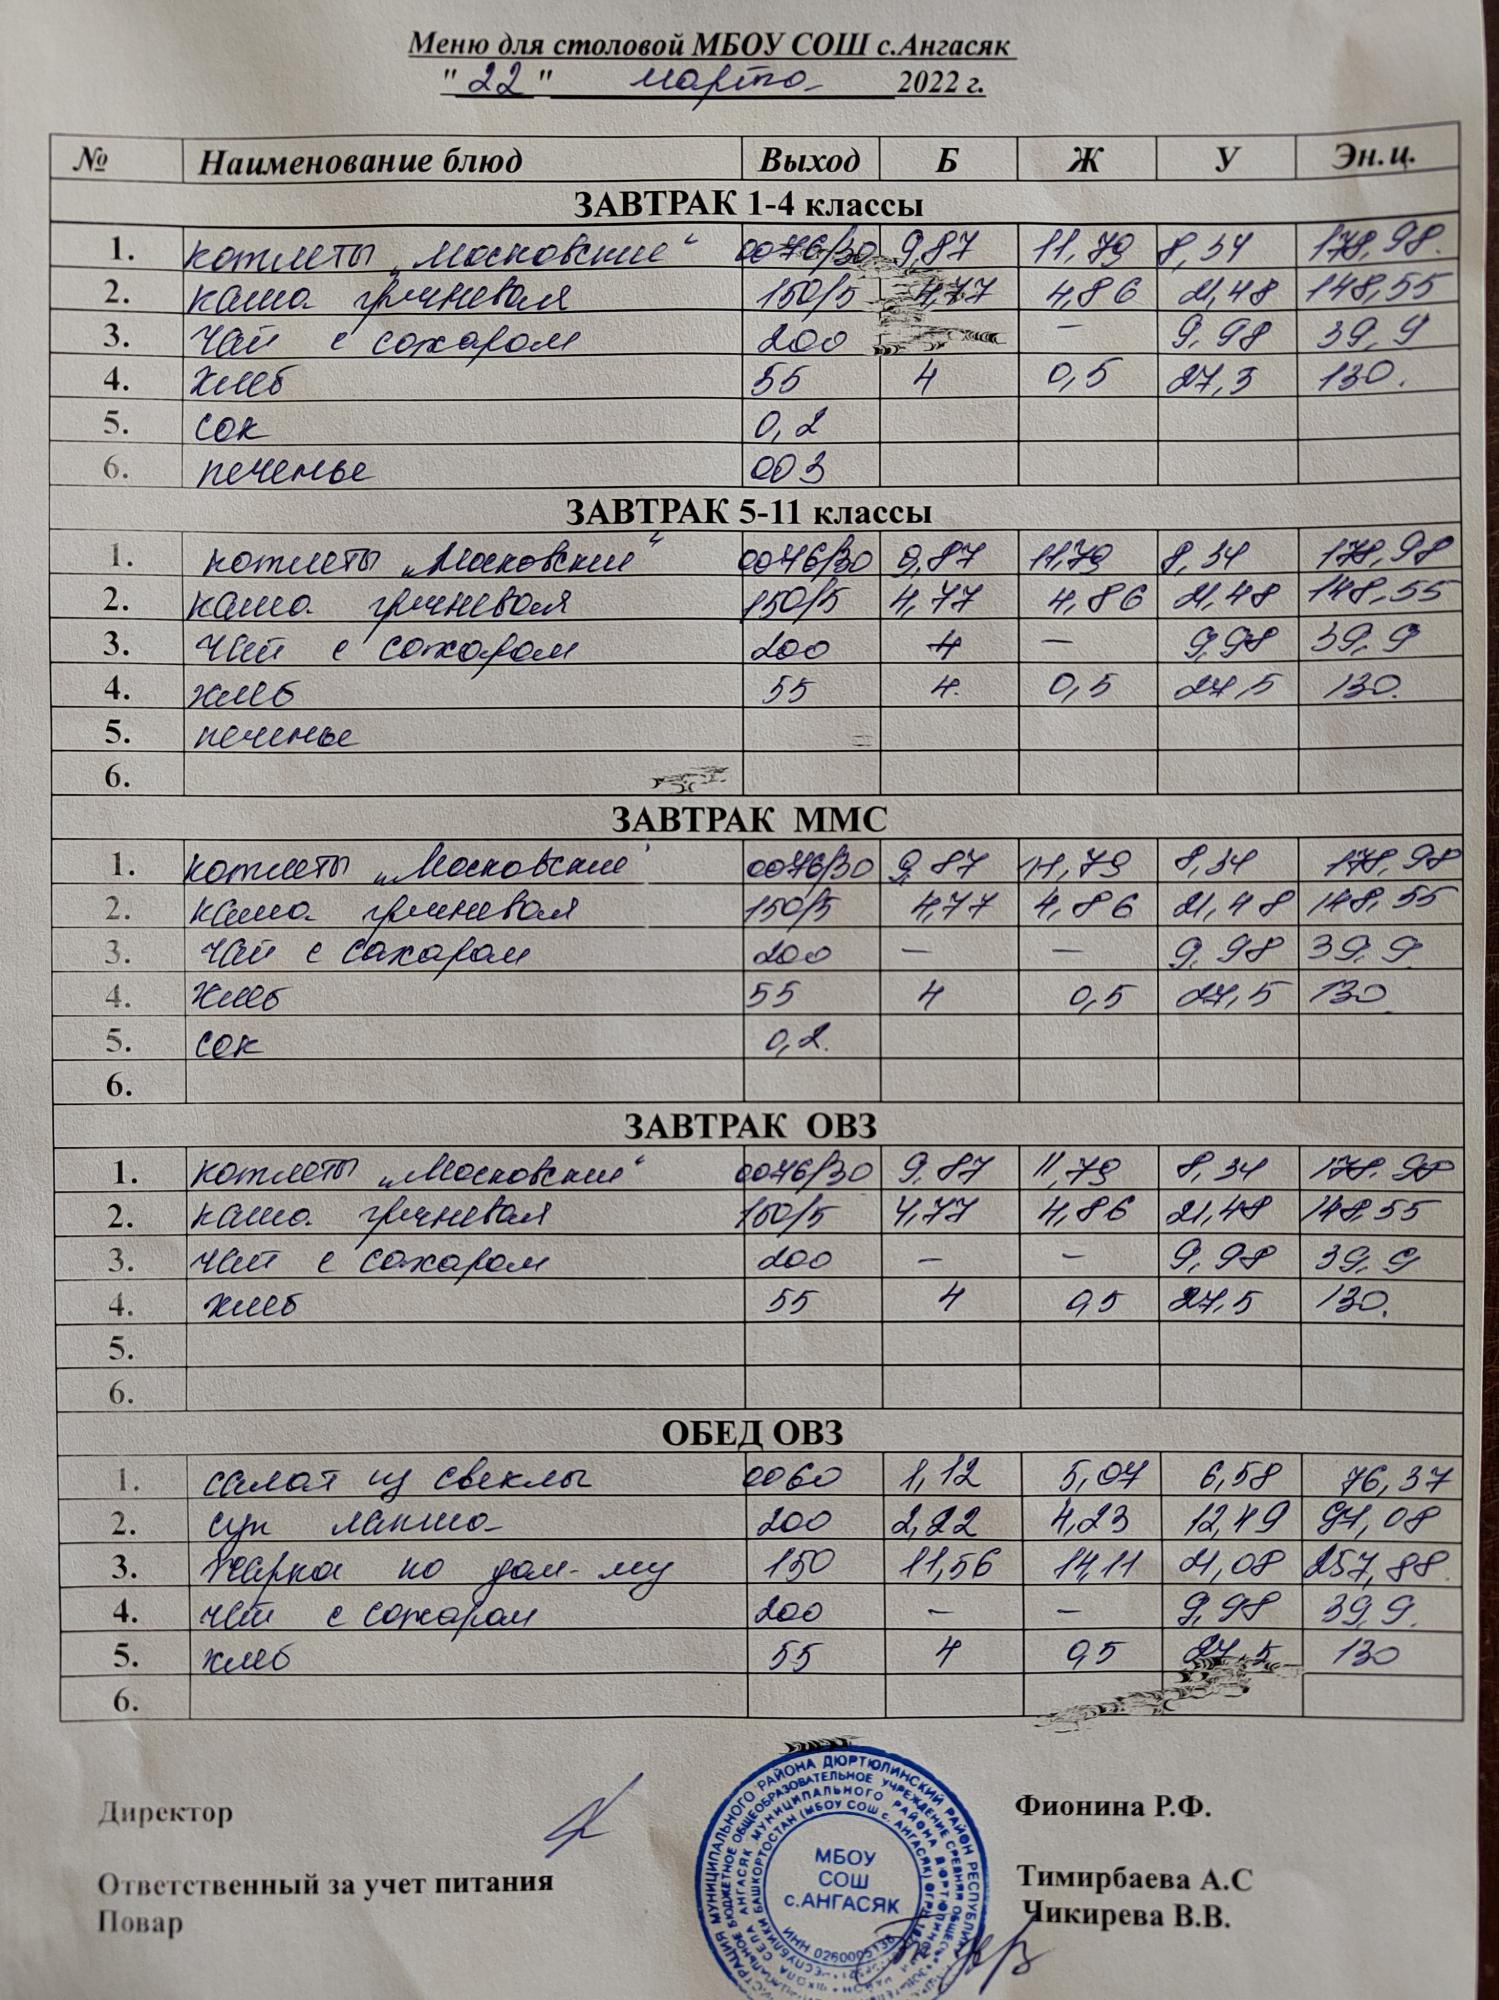 Меню для столовой МБОУ СОШ с.Ангасяк
"22" марта 2022 г.
№ Наименование блюд Выход Б Ж У Эн.ц.
ЗАВТРАК 1-4 классы
1. котлеты „Московские“ 0076/30 9,87 11,79 8,34 178,98.
2. каша гречневая 150/5 4,77 4,86 21,48 148,55
3. Чай с сахаром 200 – 9,98 39,9
4. Хлеб 55 4 0,5 27,5 130.
5. сок 0,2
6. печенье 003
ЗАВТРАК 5-11 классы
1. котлеты „Московские“ 0076/30 9,87 11,79 8,34 178,98
2. каша гречневая 150/5 4,77 4,86 21,48 148,55
3. Чай с сахаром 200 – 9,98 39,9
4. хлеб 55 4. 0,5 27,5 130.
5. печенье
6.
ЗАВТРАК ММС
1. котлеты „Московские 0076/30 9,87 11,79 8,34 178,98
2. каша гречневая 150/5 4,77 4,86 21,48 148,55
3. Чай с сахаром 200 – – 9,98 39,9
4. Хлеб 55 4 0,5 27,5 130
5. сок 0,2.
6.
ЗАВТРАК ОВЗ
1. котлеты „Московские“ 0076/30 9,87 11,79 8,34 178,98
2. каша гречневая 150/5 4,77 4,86 21,48 148,55
3. чай с сахаром 200 – – 9,98 39,9
4. хлеб 55 4 0,5 27,5 130.
5.
6.
ОБЕД ОВЗ
1. салат из свеклы 0060 1,12 5,07 6,58 76,37
2. суп лапша 200 2,22 4,23 12,49 97,08
3. Жаркое по дом-му 150 11,56 14,11 21,08 257,88.
4. чай с сахаром 200 – – 9,98 39,9.
5. хлеб 55 4 0,5 27,5 130
6.
Директор Фионина Р.Ф.
Ответственный за учет питания Тимирбаева А.С
Повар Чикирева В.В.
МБОУ
СОШ
с.АНГАСЯК